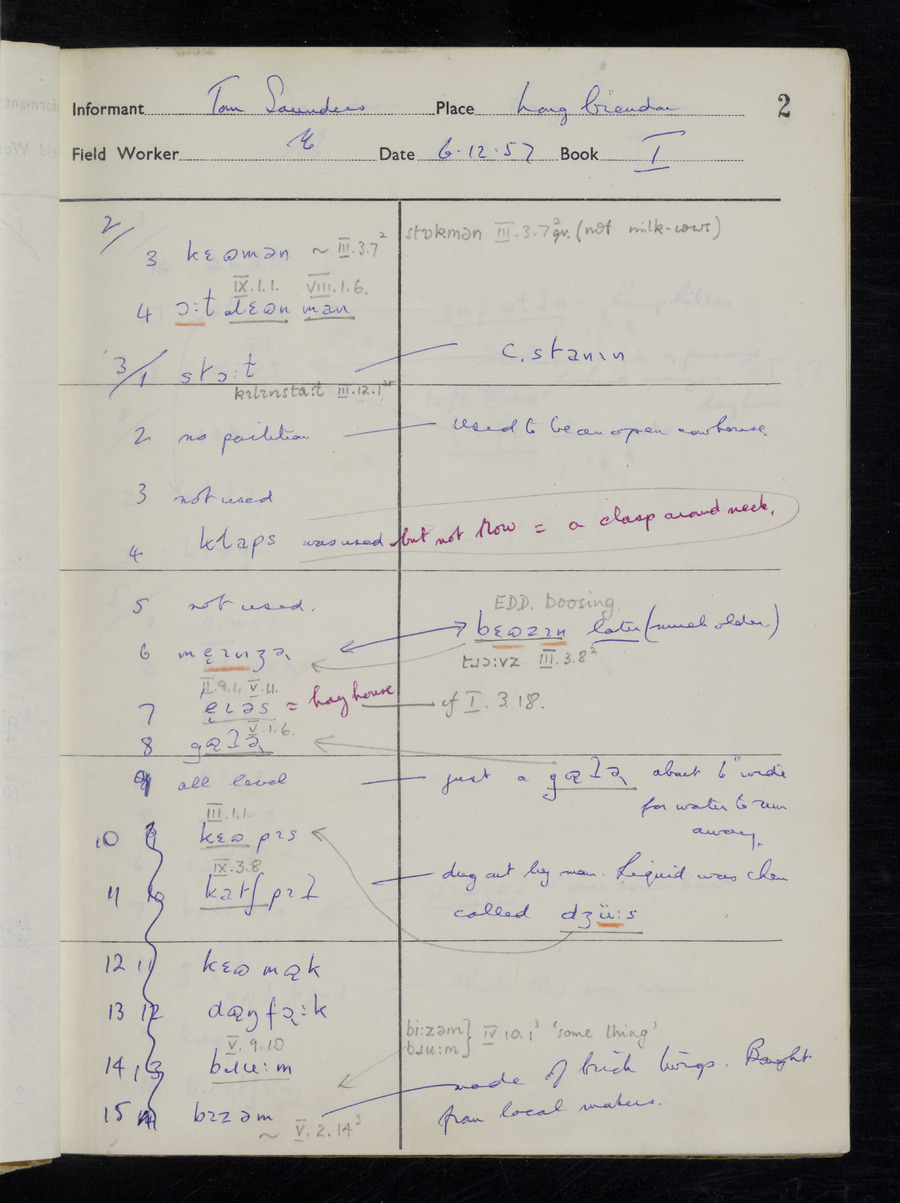 Informant Tom Saunders Place Long Crendon 2
Field Worker Date 6.12.57 Book I
2/
3 kɛɷmən ~ III.3.7² stɒkmən III.3.7² qv. (not milk-cows)
IX.1.1. VIII.1.6.
4 ɔ:t dɛɷn man
3/1 stɔ:t C. stanɪn
III.12.1
2 no partition used to be an open cowhouse.
3 not used
4 klaps was used but not now = a clasp around neck.
5 not used. EDD. boosing
bɛɷzɪn later (much older.)
6 mɛɪnʒə
tɹɔ:vz III.3.8²
II.9.1. V.1.1.
7 ɛɪəs = hay house cf I. 3.18.
V.1.6.
8
9 all level just a about 6" wide
for water to run
away.
III.1.1.
10 9 kɛɷ pɪs
IX.3.8
11 10 katʃ pɪt dug out by man. Liquid was then
called dʒü:s
12 11 kɛɷ mək
13 12
bi:zəm } IV.10.1³ 'some thing'
bɹu:m
V.9.10
14 13 bɹu:m made of birch twigs. Bought
15 14 bɪzəm from local makers.
~ V.2.14³